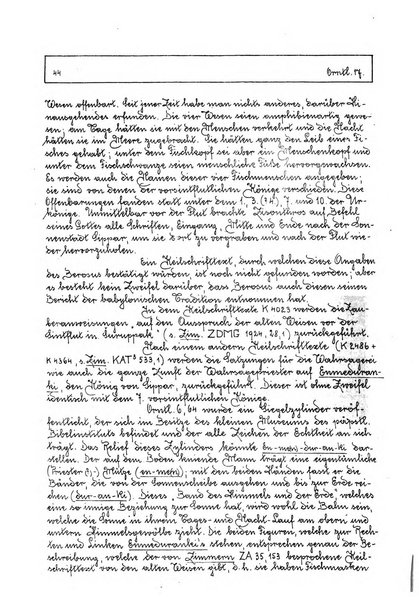 44 Orntl. 17.
Wesen offenbart. Seit jener Zeit habe man nichts anderes, darüber Hi-
nausgehendes erfunden. Die vier Wesen seien amphibienartig gewe-
sen; am Tage hätten sie mit den Menschen verkehrt und die Nacht
hätten sie im Meere zugebracht. Sie hätten ganz den Leib eines Fi-
sches gehabt; unter dem Fischkopf sei aber ein Menschenkopf und
unter dem Fischschwanze seien menschliche Füße hervorgewachsen.
Es werden auch die Namen dieser vier Fischmenschen angegeben;
sie sind von denen der vorsintflutlichen Könige verschieden. Diese
Offenbarungen fanden statt unter dem 1., 3. (?4.), 7. und 10. der Ur-
könige. Unmittelbar vor der Flut brachte Xisouthros auf Befehl
seines Gottes alle Schriften, Eingang, Mitte und Ende nach der Son-
nenstadt Sippar, um sie dort zu vergraben und nach der Flut wie-
der hervorzuholen.
Ein Keilschrifttext, durch welchen diese Angaben
des Berosus bestätigt würden, ist noch nicht gefunden worden; aber
es besteht kein Zweifel darüber, dass Berosus auch diesen seinen
Bericht der babylonischen Tradition entnommen hat.
In dem Keilschrifttexte K 4023 werden die Zau-
beranweisungen „auf den Ausspruch der alten Weisen vor der
Sintflut in Suruppak" (s. Zim. ZDMG 1924, 28,1) zurückgeführt.
Nach einem andern Keilschrifttexte (K 2486 +
K 4364, s. Zim. KAT³ 533,1) werden die Satzungen für die Wahrsagerei
wie auch die ganze Zunft der Wahrsagepriester auf Enmeduran-
ki, den König von Sippar, zurückgeführt. Dieser ist ohne Zweifel
identisch mit dem 7. vorsintflutlichen Könige.
Orntl. 6, 64 wurde ein Siegelzylinder veröf-
fentlicht, der sich im Besitze des kleinen Museums des päpstl.
Bibelinstituts befindet und der alle Zeichen der Echtheit an sich
trägt. Das Relief dieses Zylinders könnte En-me(n)-dur-an-ki dar-
stellen. Der auf dem Boden knieende Mann trägt eine eigentümliche
(Priester?-) Mütze (en-me(n)); mit den beiden Händen fasst er die
Bänder, die von der Sonnenscheibe ausgehen und bis zur Erde rei-
chen (dur-an-ki). Dieses „Band des Himmels und der Erde", welches
eine so innige Beziehung zur Sonne hat, wird wohl die Bahn sein,
welche die Sonne in ihrem Tages- und Nacht-Lauf am obern und
untern Himmelsgewölbe zieht. Die beiden Figuren, welche zur Rech-
ten und Linken Enmeduranki's stehen entsprechen genau der Be-
schreibung, welche der von Zimmern ZA 35, 153 besprochene Keil-
schrifttext von den alten Weisen gibt, d.h. sie haben Fischmasken